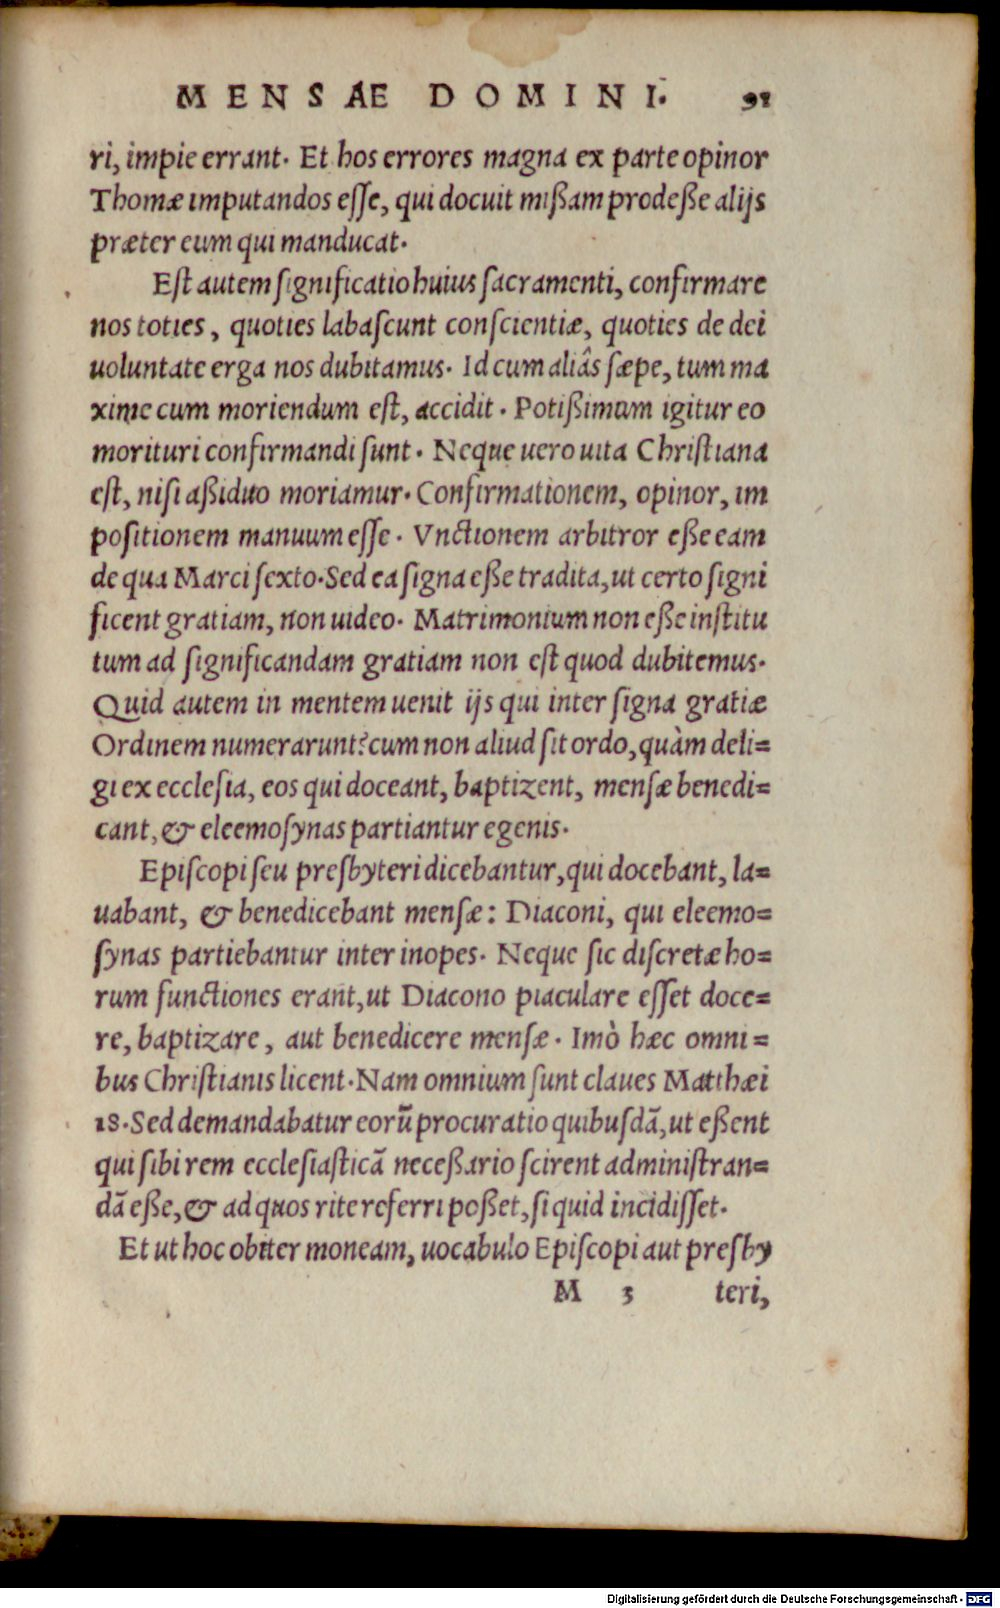 MENSAE DOMINI. 91
ri, impie errant. Et hos errores magna ex parte opinor
Thomæ imputandos eſſe, qui docuit mißam prodeße alijs
præter eum qui manducat.
Eſt autem ſignificatio huius ſacramenti, confirmare
nos toties, quoties labaſcunt conſcientiæ, quoties de dei
uoluntate erga nos dubitamus. Id cum aliâs ſæpe, tum ma
xime cum moriendum eſt, accidit. Potißimum igitur eo
morituri confirmandi ſunt. Neque uero uita Chriſtiana
eſt, niſi aßiduo moriamur. Confirmationem, opinor, im
poſitionem manuum eſſe. Vnctionem arbitror eße eam
de qua Marci ſexto. Sed ea ſigna eße tradita, ut certo ſigni
ficent gratiam, non uideo. Matrimonium non eße inſtitu
tum ad ſignificandam gratiam non eſt quod dubitemus.
Quid autem in mentem uenit ijs qui inter ſigna gratiæ
Ordinem numerarunt? cum non aliud ſit ordo, quàm deli=
gi ex eccleſia, eos qui doceant, baptizent, menſæ benedi=
cant, & eleemoſynas partiantur egenis.
Epiſcopi ſeu presbyteri dicebantur, qui docebant, la=
uabant, & benedicebant menſæ: Diaconi, qui eleemo=
ſynas partiebantur inter inopes. Neque ſic diſcretæ ho=
rum functiones erant, ut Diacono piaculare eſſet doce=
re, baptizare, aut benedicere menſæ. Imò hæc omni=
bus Chriſtianis licent. Nam omnium ſunt claues Matthæi
18. Sed demandabatur eorũ procuratio quibuſdã, ut eßent
qui ſibi rem eccleſiaſticã neceßario ſcirent adminiſtran=
dã eße, & ad quos rite referri poßet, ſi quid incidiſſet.
Et ut hoc obiter moneam, uocabulo Epiſcopi aut presby
M 3 teri,
Digitalisierung gefördert durch die Deutsche Forschungsgemeinschaft - DFG